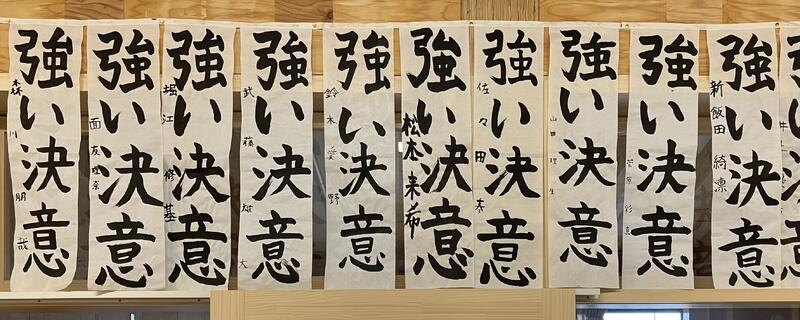 強い決意
新飯田綺凛
強い決意
菅原彩真
強い決意
山田理生
強い決意
佐々田泰
強い決意
松本来希
強い決意
鈴木愛野
強い決意
武藤雄大
強い決意
堀江修基
強い決意
面友理奈
強い決意
森川朋哉